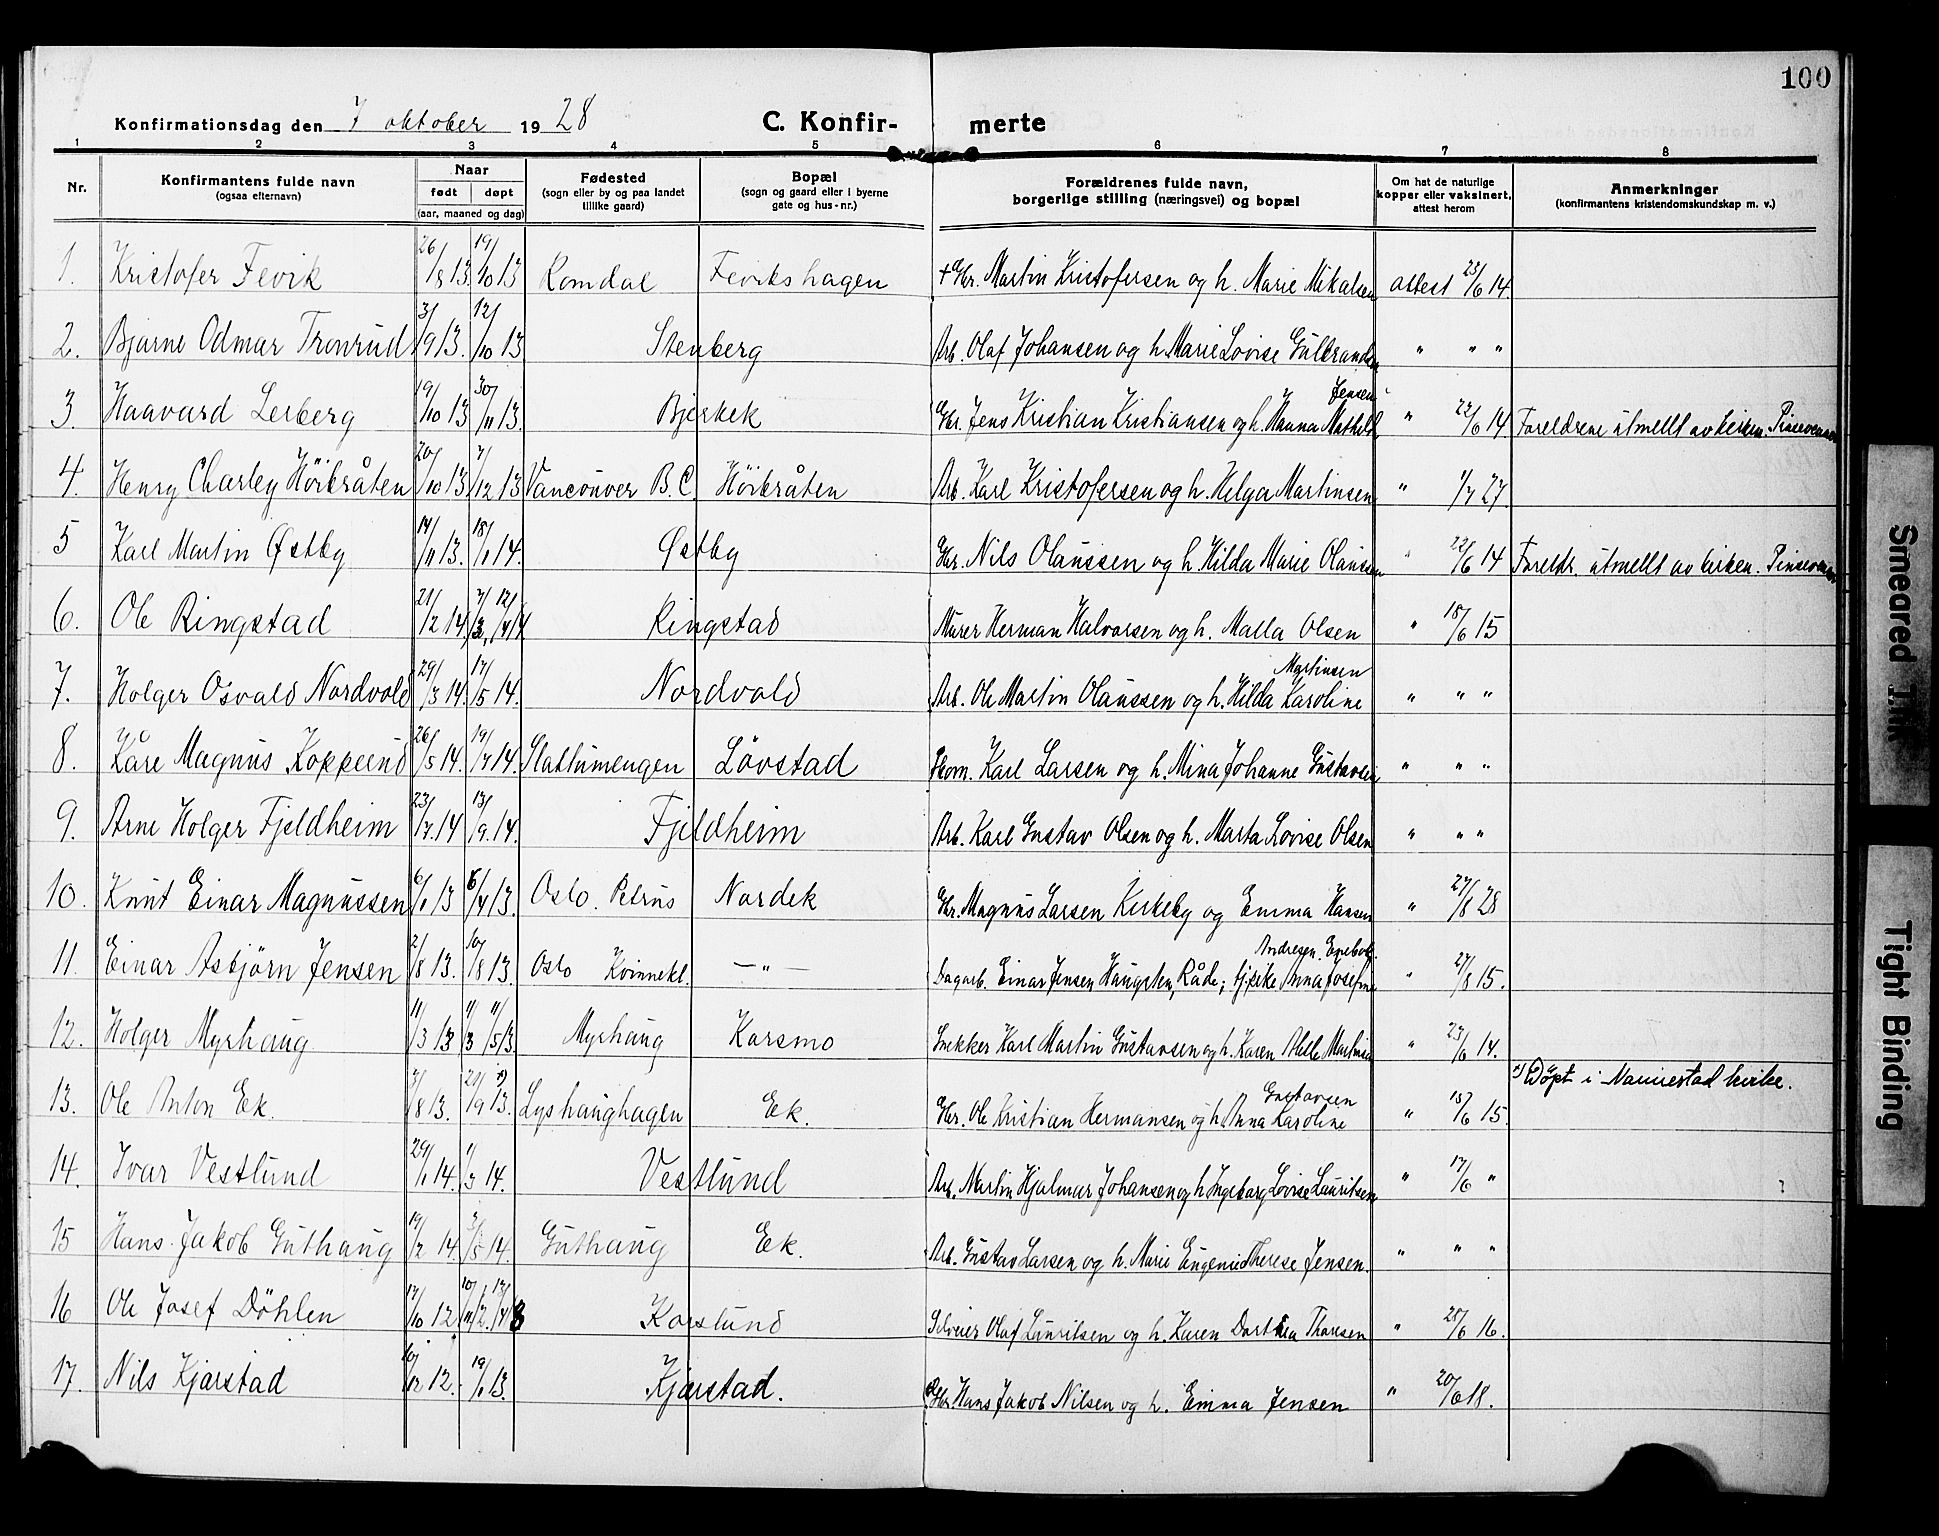 100
Konfirmationsdag den 7 oktober 1928
C. Konfir- merte
1 2 3 4 5 6 7 8
Nr. | Konfirmantens fulde navn (ogsaa efternavn) | Naar født døpt (aar, maaned og dag) | Fødested (sogn eller by og paa landet tillike gaard) | Bopæl (sogn og gaard eller i byerne gate og hus-nr.) | Forældrenes fulde navn, borgerlige stilling (næringsvei) og bopæl | Om hat de naturlige kopper eller vaksinert, attest herom | Anmerkninger (konfirmantens kristendomskundskap m. v.)
1. Kristofer Fevik 26/8 13. 19/10 13 Romdal Fevikshagen + Gbr. Martin Kristofersen og h. Marie Mikalsen attest 23/6 14.
2. Bjarne Odmar Tronrud 3/9 13. 12/10 13 Stenberg Arb. Olaf Johansen og h. Marie Lovise Gulbrandsen " " "
3. Haavard Lerberg 19/10 13 30/11 13. Bjerkek Gbr. Jens Kristian Kristiansen og h. Hanna Mathilde Jensen " 22/6 14 Foreldrene utmeldt av kirken. Pinsevenner
4. Henry Charley Höibråten 20/10 13 7/12 13 Vancouver B.C. Höibråten Arb. Karl Kristofersen og h. Helga Martinsen " 1/7 27.
5 Karl Martin Østby 14/11 13. 18/1 14. Østby Gbr. Nils Olaussen og h. Hilda Marie Olaussen " 22/6 14 Foreldr. utmellt av kirken. Pinsevenner
6. Ole Ringstad 21/2 14 7/3, 12/4 14 Ringstad Murer Herman Halvorsen og h. Malla Olsen " 18/6 15
7. Holger Osvald Nordvold 29/3 14. 17/5 14. Nordvold Arb. Ole Martin Olaussen og h. Hilda Karoline Martinsen " " "
8. Kåre Magnus Kopperud 26/5 14. 19/7 14. Slattumengen Lövstad Hom. Karl Larsen og h. Mina Johanne Gustavsen " " "
9. Arne Holger Fjeldheim 23/7. 14 13/9. 14. Fjeldheim Arb. Karl Gustav Olsen og h. Marta Lovise Olsen " " "
10. Knut Einar Magnussen 6/1 13 6/4 13. Oslo. Petrus Nordek Gbr. Magnus Larsen Kirkeby og Emma Hansen " 27/8 28
11. Einar Asbjörn Jensen 2/8 13. 10/8 13 Oslo Kvinnekl. — " — Dagarb. Einar Jensen Haugsten, Råde; tj.pike Anna Josefine Andresen. Enebak. " 27/8 15.
12. Holger Myrhaug 11/3 13 1/3 11/5 13 Myrhaug Karsmo Snekker Karl Martin Gustavsen og h. Karen Martinsen " 23/6 14.
13. Ole Anton Ek. 3/8 13. 21/9 13. Lyshaughagen Ek. Gbr. Ole Kristian Hermansen og h. Anna Karoline Gustavsen " 18/6 15. *) Döpt i Nannestad kirke.
14. Ivar Vestlund 29/1 14. 1/3 14. Vestlund Arb. Martin Hjalmar Johansen og h. Ingeborg Lovise Lauritsen " 17/6 "
15 Hans Jakob Guthaug 19/2 14. 3/5 14. Guthaug Ek. Arb. Gustav Larsen og h. Marie Eugenie Therese Jensen. " " "
16 Ole Josef Döhlen 17/10 12 10/11 12. 13/4 13 Korslund Selveier Olaf Lauritsen og h. Karen Dorthea Thoresen " 28/6 16.
17. Nils Kjærstad 10/12 12. 19/1 13. Kjærstad. Gbr. Hans Jakob Nilsen og h. Emma Jensen " 20/6 18.
Smeared Ink
Tight Binding